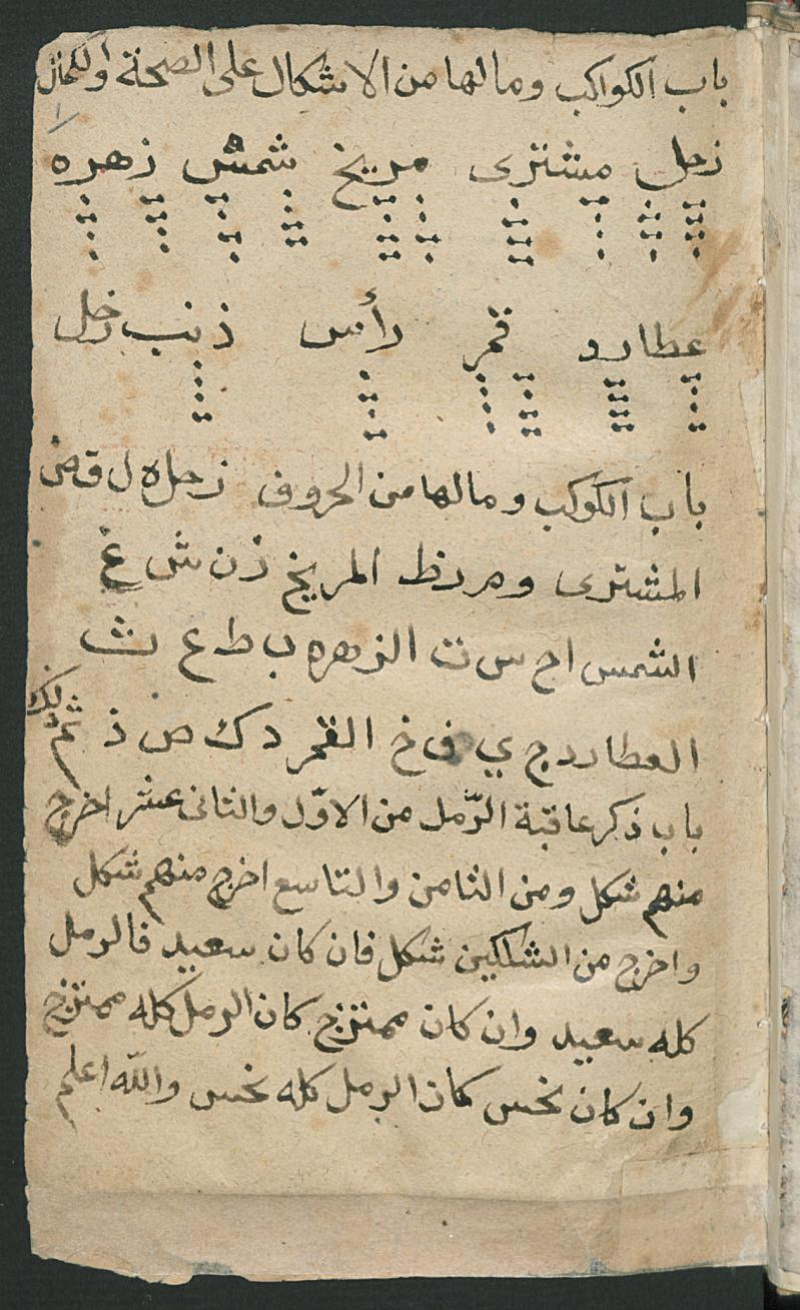 باب الكواكب ومالها من الاشكال على الصحة والكمال
زحل مشترى مريخ شمس زهره
عطارد قمر رأس ذنب زحل
باب الكوكب ومالها من الحروف زحل ه ل ق ض
المشترى و م ر ظ المريخ ز ن ش غ
الشمس ا ح س ت الزهره ب ط ع ث
العطارد ج ي ف خ القمر د ك ص ذ ثم ذلك
باب ذكر عاقبة الرّمل من الاوّل والثانى عشر اخرج
منهم شكل ومن الثامن والتاسع اخرج منهم شكل
واخرج من الشكلين شكل فان كان سعيد فالرمل
كله سعيد وان كان ممتزج كان الرمل كله ممتزج
وان كان نحس كان الرمل كله نحس والله اعلم